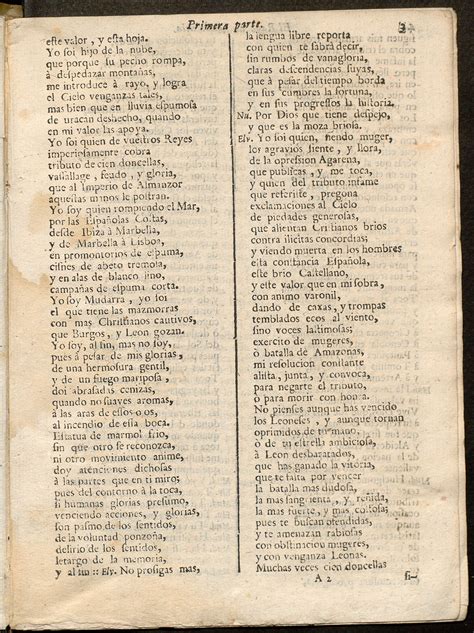 Primera parte.
3
este valor, y esta hoja.
Yo soi hijo de la nube,
que porque su pecho rompa,
à despedazar montañas,
me introduce à rayo, y logra
el Cielo venganzas tales,
mas bien que en lluvia espumosa
de uracan deshecho, quando
en mi valor las apoya.
Yo soi quien de vuestros Reyes
imperiosamente cobra
tributo de cien doncellas,
vassallage, feudo, y gloria,
que al Imperio de Almanzor
aquellas manos le postran.
Yo soy quien rompiendo el Mar,
por las Españolas Costas,
desde Ibiza à Marbella,
y de Marbella à Lisboa,
en promontorios de espuma,
cisnes de abeto tremola,
y en alas de blanco lino,
campañas de espuma corta.
Yo soy Mudarra, yo soi
el que tiene las mazmorras
con mas Christianos cautivos,
que Burgos, y Leon gozan.
Yo soy, al fin, mas no soy,
pues à pesar de mis glorias,
de una hermosura gentil,
y de un fuego mariposa,
doi abrasadas cenizas,
quando no suaves aromas,
à las aras de essos ojos,
al incendio de essa boca.
Estatua de marmol frio,
sin que otro se reconozca,
ni otro movimiento anime,
doy atenciones dichosas
à las partes que en ti miro;
pues del contorno à la toca,
si humanas glorias presumo,
venciendo acciones, y glorias,
son pasmo de los sentidos,
de la voluntad ponzoña,
delirio de los sentidos,
letargo de la memoria,
y al fin :: Elv. No prosigas mas,
la lengua libre reporta
con quien te sabrà decir,
sin rumbos de vanagloria,
claras descendencias suyas,
que à pesar del tiempo borda
en sus cumbres la fortuna,
y en sus progressos la historia.
Nu. Por Dios que tiene despejo,
y que es la moza briosa.
Elv. Yo soi quien, siendo muger,
los agravios siente, y llora,
de la opression Agarena,
que publicas, y me toca,
y quien del tributo infame
que referiste, pregona
exclamaciones al Cielo
de piedades generosas,
que alientan Cristianos brios
contra ilicitas concordias;
y viendo muerta en los hombres
esta constancia Española,
este brio Castellano,
y este valor que en mi sobra,
con animo varonil,
dando de caxas, y trompas
temblados ecos al viento,
sino voces lastimosas;
exercito de mugeres,
ò batalla de Amazonas,
mi resolucion constante
alista, junta, y convoca,
para negarte el tributo,
ò para morir con honra.
No pienses aunque has vencido
los Leoneses, y aunque tornan
oprimidos de tu mano,
ò de tu estrella ambiciosa,
à Leon desbaratados,
que has ganado la vitoria,
que te falta por vencer
la batalla mas dudosa,
la mas sangrienta, y reñida,
la mas fuerte, y mas costosa,
pues te buscan ofendidas,
y te amenazan rabiosas
con obstinacion mugeres,
y con venganza Leonas.
Muchas veces cien doncellas
A 2
si-